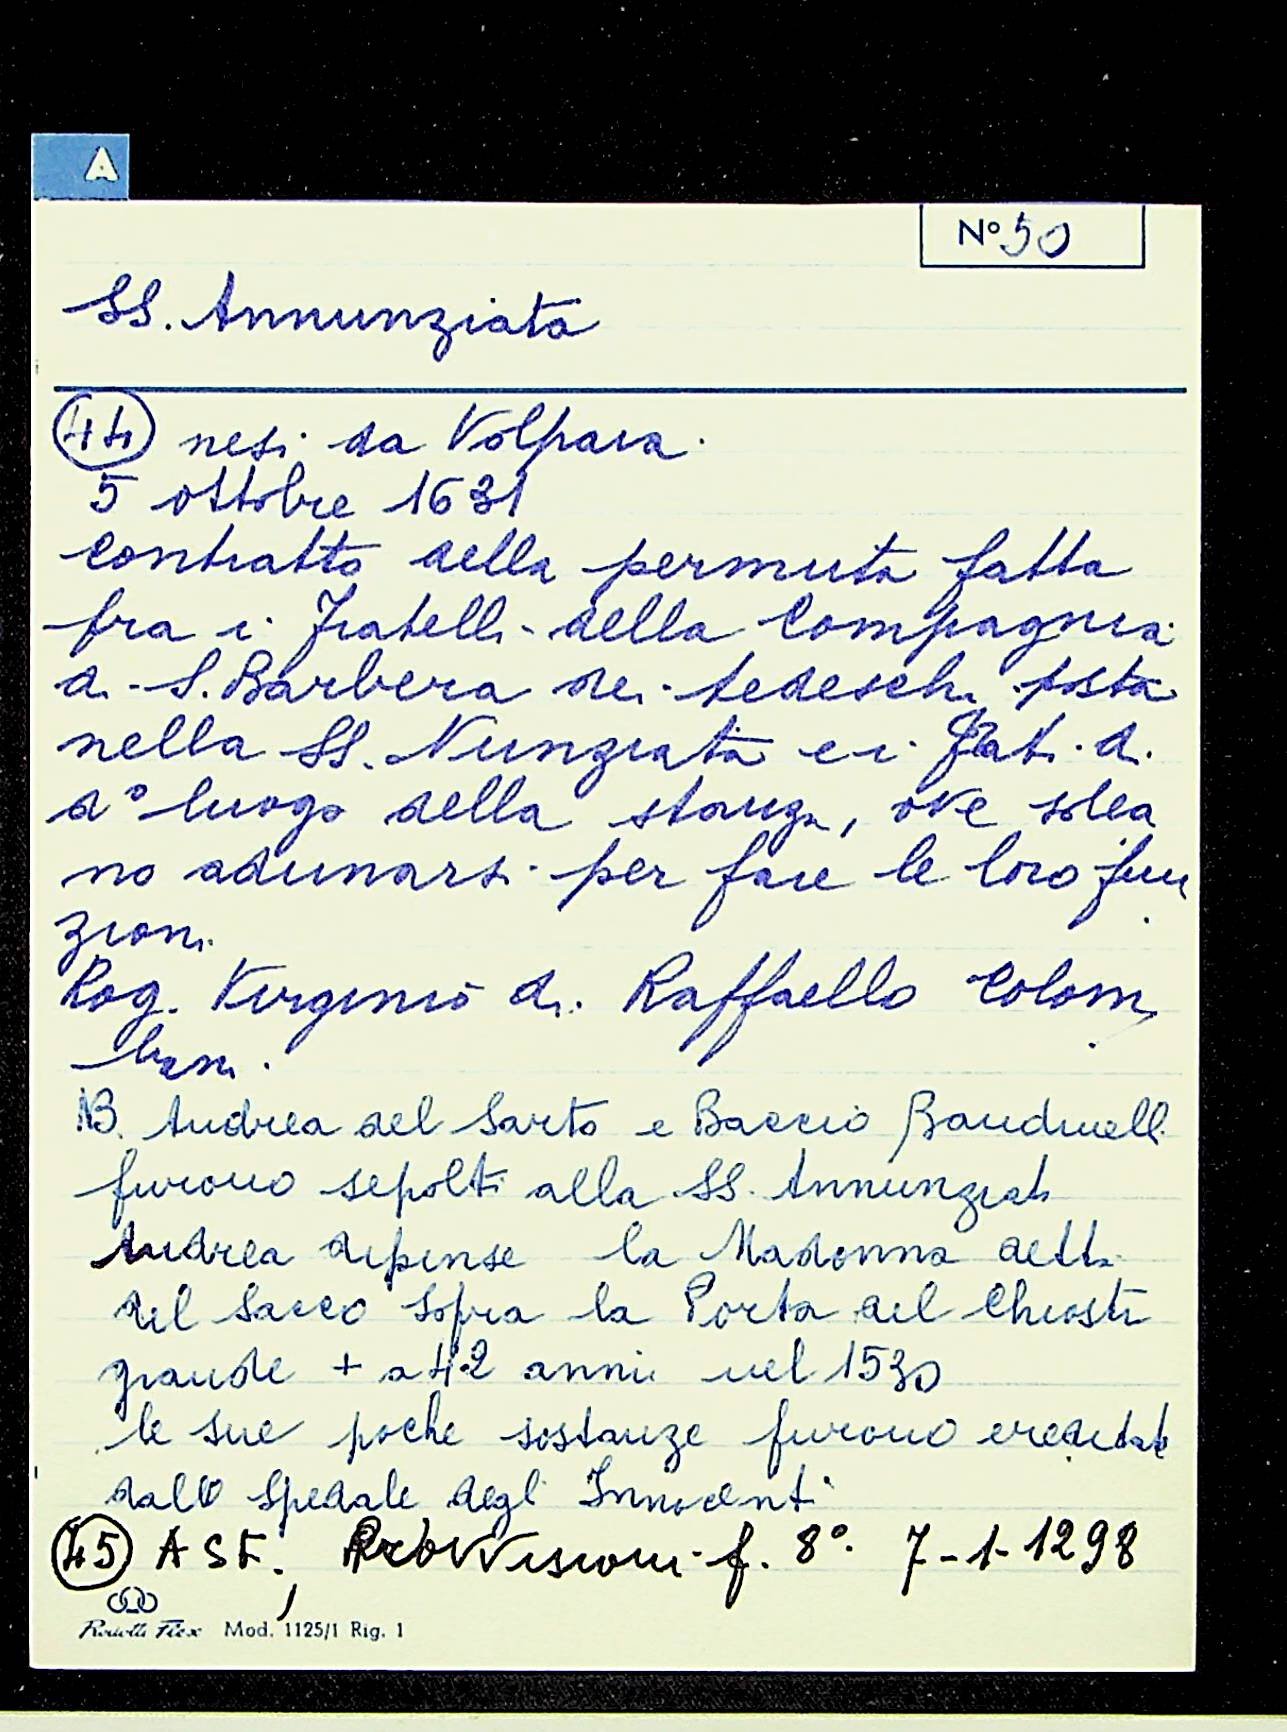 A
N° 50
SS. Annunziata
44 nesi da Volpaia.
5 ottobre 1631
Contratto della permuta fatta
fra i Fratelli della Compagnia
di S. Barbera dei tedeschi posta
nella SS. Nunziata e i Frati di
d° luogo della stanza, ove solea
no adunarsi per fare le loro fun
zioni
Rog. Virginio di Raffaello Colom
bini.
NB. Andrea del Sarto e Baccio Bandinelli
furono sepolti alla SS. Annunziata
Andrea dipinse la Madonna detta
del Sacco sopra la Porta del Chiostro
grande + a 42 anni nel 1530
le sue poche sostanze furono ereditate
dallo Spedale degli Innocenti
45 ASF, Provvisioni f. 8° 7-1-1298
Flex Mod. 1125/1 Rig. 1